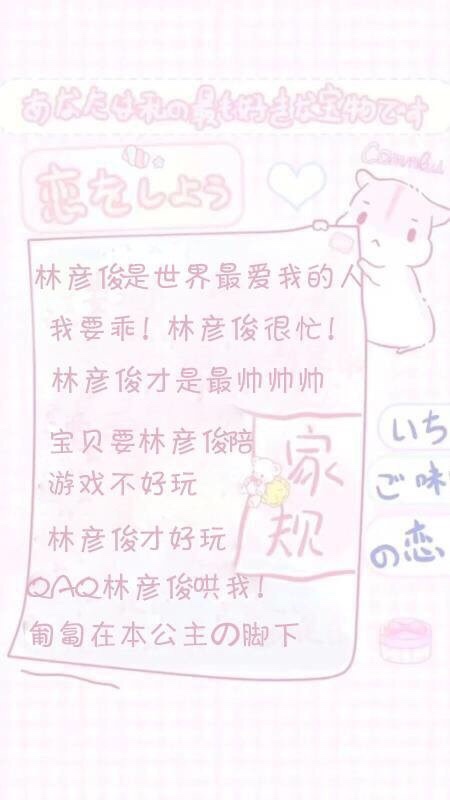 あなたは私の最も好きな宝物です
恋をしよう
林彦俊是世界最爱我的人
我要乖！林彦俊很忙！
林彦俊才是最帅帅帅
宝贝要林彦俊陪
游戏不好玩
林彦俊才好玩
QAQ林彦俊哄我！
匍匐在本公主の脚下
家
规
いち
ご味
の恋